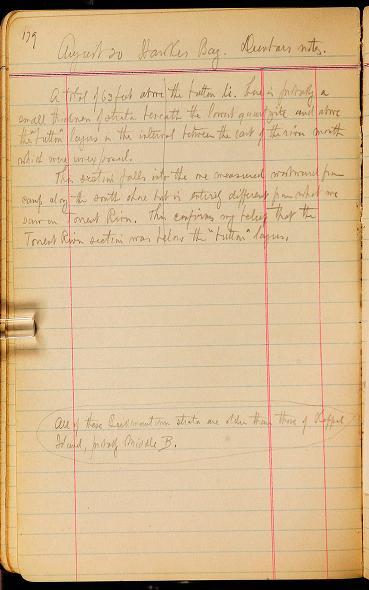 179
August 20 Hawkes Bay. Dunbars notes.
A total of 63 feet above the button ls. There is probably a
small thickness of strata beneath the lowest quartzite and above
the "button" layers in the interval between the east of the river mouth
which were unexposed.
This section falls into the one measured westward from
camp along the south shore but is entirely different from what we
saw in Torrent River. This confirms my belief that the
Torrent River section was below the "button" layers.
All of these strata are older than those of Keppel
Island, probably Middle B.